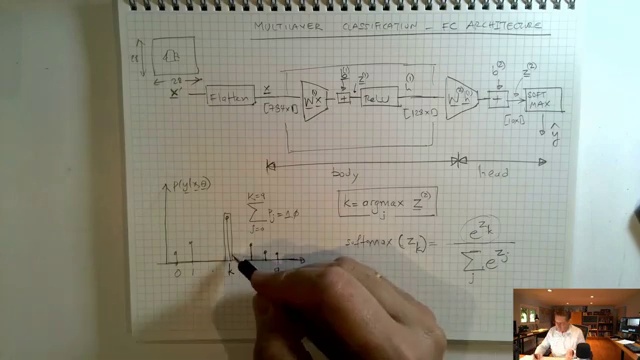 MULTILAYER CLASSIFICATION - FC ARCHITECTURE
28
28
X
Flatten
x
[784x1]
W⁽¹⁾x
b⁽¹⁾
+
z⁽¹⁾
ReLU
h⁽¹⁾
[128x1]
W⁽²⁾h⁽¹⁾
b⁽²⁾
+
z⁽²⁾
[10x1]
SOFT
MAX
ŷ
body
head
P(y|x,θ)
K=9
Σ Pj=1.0
j=0
K = argmax z⁽²⁾
j
softmax (z_k) = e^{z_k} / Σ_j e^{z_j}
0 1 k 9